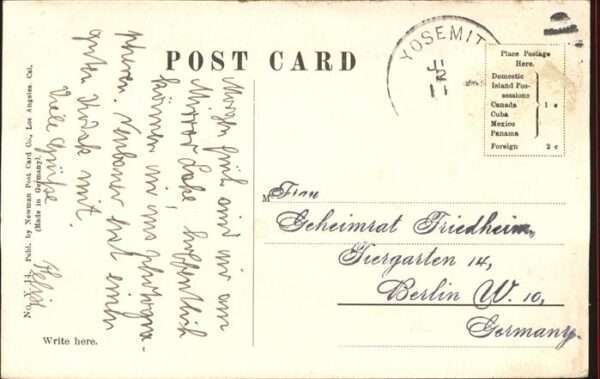 POST CARD
YOSEMIT
Place Postage
Here.
Domestic
Island Pos-
sessions
Canada
Cuba
Mexico
Panama
1 c
Foreign 2 c
M Frau
Geheimrat Friedheim,
Tiergarten 14,
Berlin W. 10,
Germany.
Morgen früh sind wir am
Mirror Lake, hoffentlich
können wir uns photogra-
phieren. Neubauer hat einen
guten Kodak mit.
Viele Grüße
No. Y. 14. Publ. by Newman Post Card Co., Los Angeles, Cal.
(Made in Germany).
Write here.